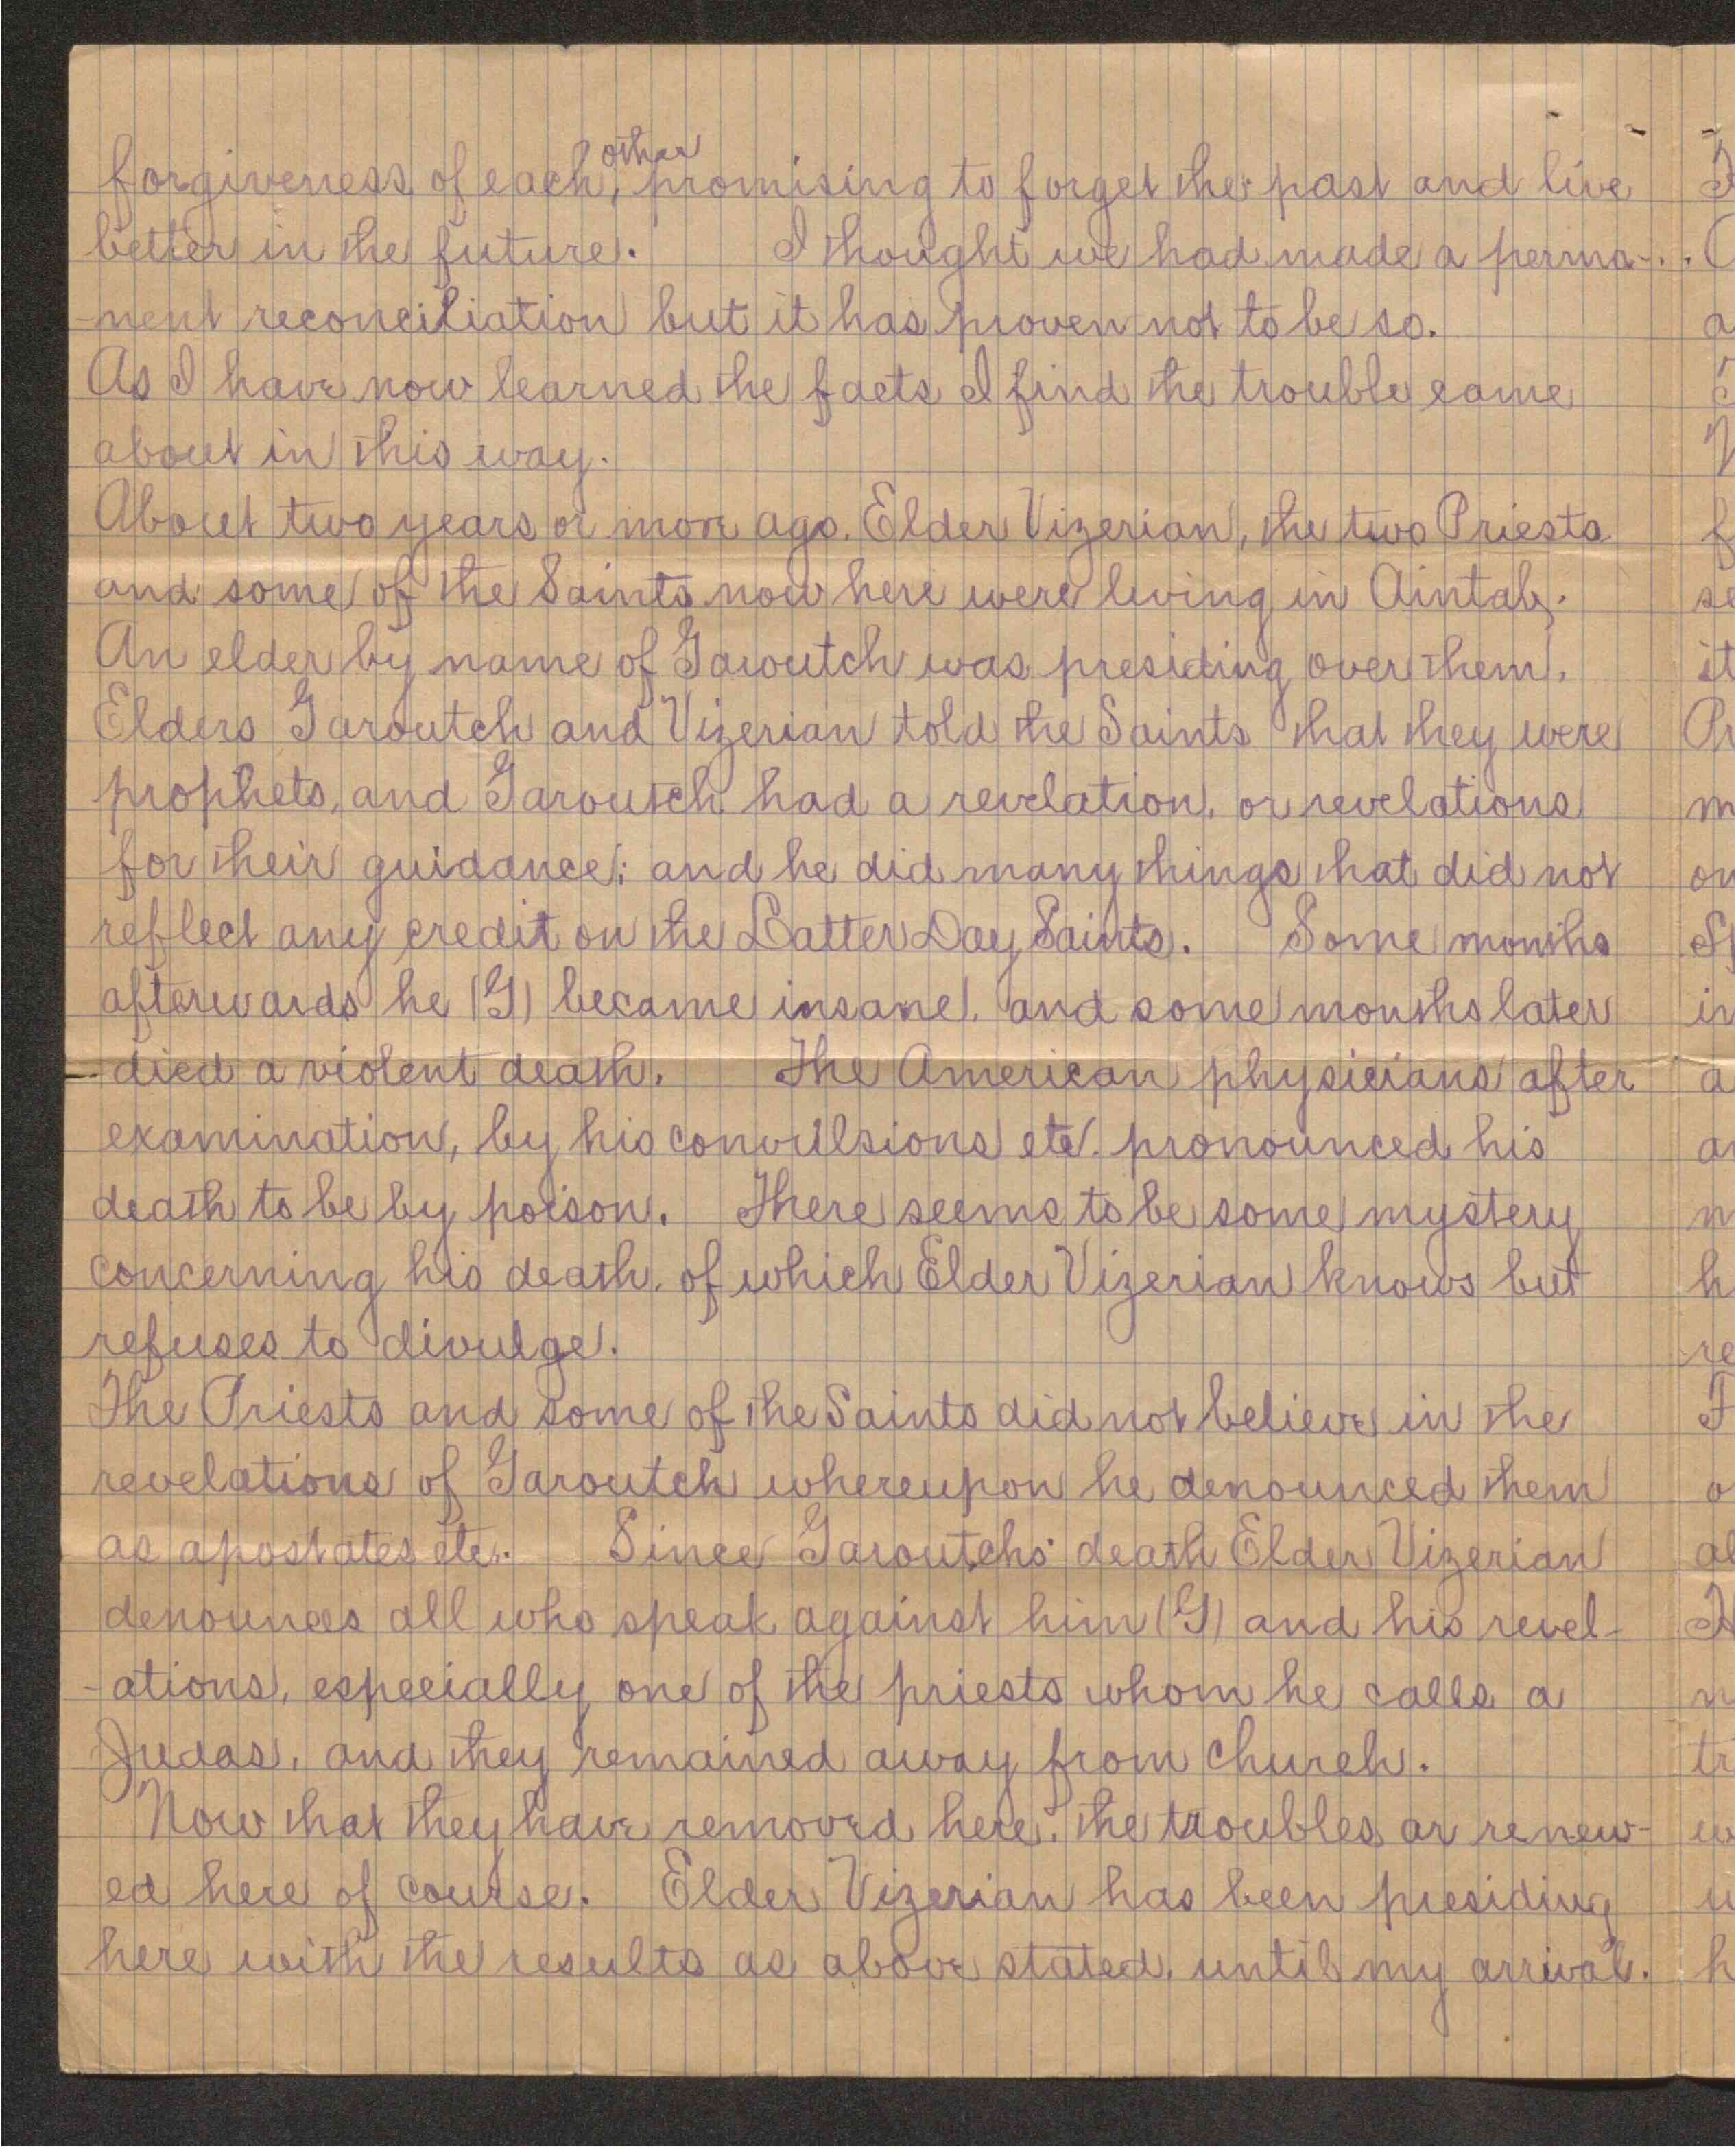 forgiveness of each, other promising to forget the past and live
better in the future. I thought we had made a perma-
-nent reconciliation but it has proven not to be so.
As I have now learned the facts I find the trouble came
about in this way.
About two years or more ago. Elder Vizerian, the two Priests
and some of the Saints now here were living in Aintab.
An elder by name of Garoutch was presiding over them.
Elders Garoutch and Vizerian told the Saints that they were
prophets, and Garoutch had a revelation, or revelations
for their guidance; and he did many things that did not
reflect any credit on the Latter Day Saints. Some months
afterwards he (G) became insane, and some months later
died a violent death. The American physicians after
examination, by his convulsions etc. pronounced his
death to be by poison. There seems to be some mystery
concerning his death, of which Elder Vizerian knows but
refuses to divulge.
The Priests and some of the Saints did not believe in the
revelations of Garoutch whereupon he denounced them
as apostates etc. Since Garoutchs' death Elder Vizerian
denounces all who speak against him (G) and his revel-
-ations, especially one of the priests whom he calls a
Judas, and they remained away from church.
Now that they have removed here, the troubles ar renew-
ed here of course. Elder Vizerian has been presiding
here with the results as above stated, until my arrival.